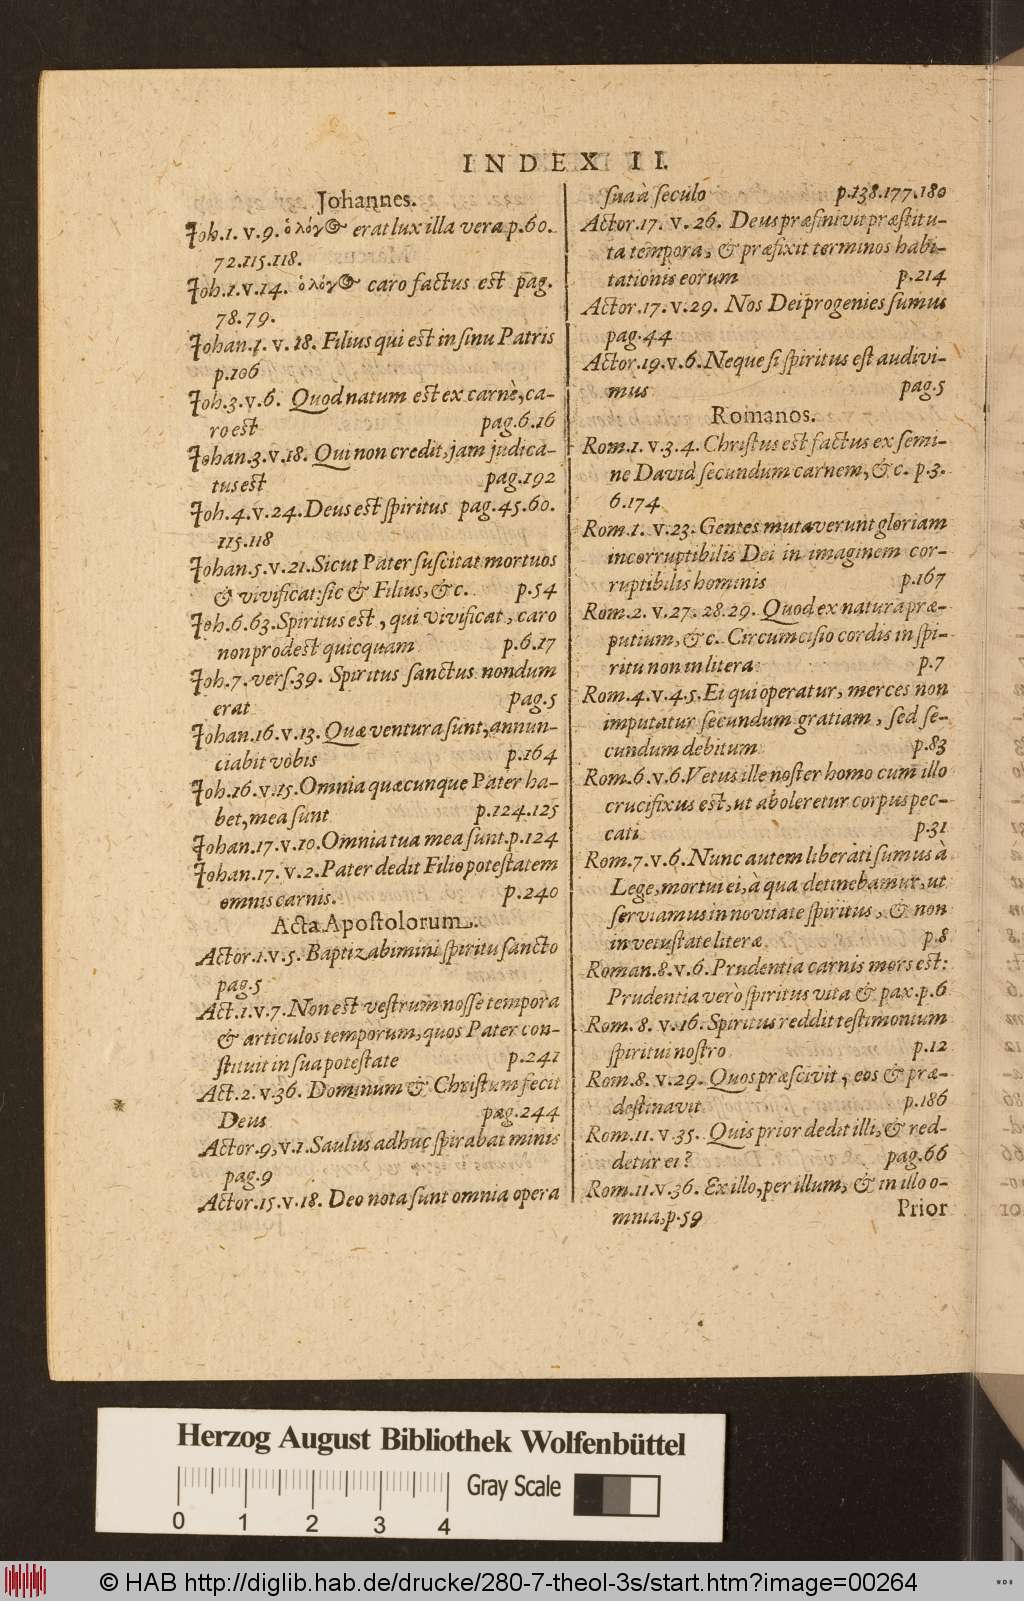 INDEX II.
Johannes.
Joh.1. v. 9. ὁ λόγος erat lux illa vera p.60.
72.115.118.
Joh.1.v.14. ὁ λόγος caro factus est pag.
78.79.
Johan.1. v. 18. Filius qui est in sinu Patris
p.106
Joh.3.v.6. Quod natum est ex carnè, ca-
ro est pag.6.16
Johan.3.v.18. Qui non credit, jam judica-
tus est pag.192
Joh.4.v.24. Deus est spiritus pag.45.60.
115.118
Johan.5.v.21. Sicut Pater suscitat mortuos
& vivificat: sic & Filius, &c. p.54
Joh.6.63. Spiritus est, qui vivificat, caro
non prodest quicquam p.6.17
Joh.7. vers.39. Spiritus sanctus nondum
erat pag.5
Johan.16.v.13. Quæ ventura sunt, annun-
ciabit vobis p.164
Joh.16.v.15. Omnia quæcunque Pater ha-
bet, mea sunt p.124.125
Johan.17.v.10. Omnia tua mea sunt. p.124
Johan.17.v.2. Pater dedit Filio potestatem
omnis carnis. p.240
Acta Apostolorum.
Actor.1.v.5. Baptizabimini spiritu sancto
pag.5
Act.1.v.7. Non est vestrum nosse tempora
& articulos temporum, quos Pater con-
stituit in sua potestate p.241
Act.2.v.36. Dominum & Christum fecit
Deus pag.244
Actor.9,v.1. Saulus adhuc spirabat minis
pag.9
Actor.15.v.18. Deo nota sunt omnia opera
sua à seculo p.138.177.180
Actor.17. v. 26. Deus præfinivit præstitu-
ta tempora, & præfixit terminos habi-
tationis eorum p.214
Actor.17.v.29. Nos Dei progenies sumus
pag.44
Actor.19.v.6. Neque si spiritus est audivi-
mus pag.5
Romanos.
Rom.1. v.3.4. Christus est factus ex semi-
ne David secundum carnem, &c. p.3.
6.174
Rom.1. v.23. Gentes mutaverunt gloriam
incorruptibilis Dei in imaginem cor-
ruptibilis hominis p.167
Rom.2. v.27. 28.29. Quod ex natura præ-
putium, &c. Circumcisio cordis in spi-
ritu non in litera p.7
Rom.4.v.4.5. Ei qui operatur, merces non
imputatur secundum gratiam, sed se-
cundum debitum p.83
Rom.6.v.6. Vetus ille noster homo cum illo
crucifixus est, ut aboleretur corpus pec-
cati p.31
Rom.7.v.6. Nunc autem liberati sumus à
Lege, mortui ei, à qua detinebamur, ut
serviamus in novitate spiritus, & non
in vetustate literæ p.8
Roman.8.v.6. Prudentia carnis mors est:
Prudentia verò spiritus vita & pax. p.6
Rom. 8. v.16. Spiritus reddit testimonium
spiritui nostro p.12
Rom.8. v.29. Quos præscivit, eos & præ-
destinavit p.186
Rom.11. v.35. Quis prior dedit illi, & red-
detur ei? pag.66
Rom.11.v.36. Ex illo, per illum, & in illo o-
mnia, p.59 Prior
Herzog August Bibliothek Wolfenbüttel
Gray Scale
0 1 2 3 4
© HAB http://diglib.hab.de/drucke/280-7-theol-3s/start.htm?image=00264